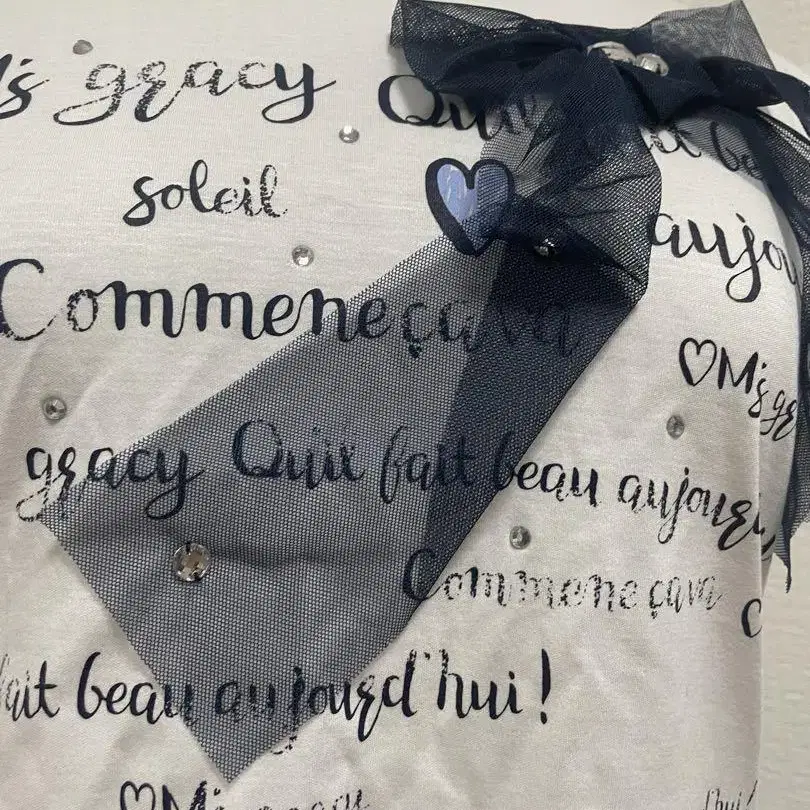 M's gracy Qu
soleil
aujou
Commene çava
♡M's gr
gracy Quix fait beau aujourd
Commene çava
fait beau aujourd'hui!
♡M's gracy
hui!